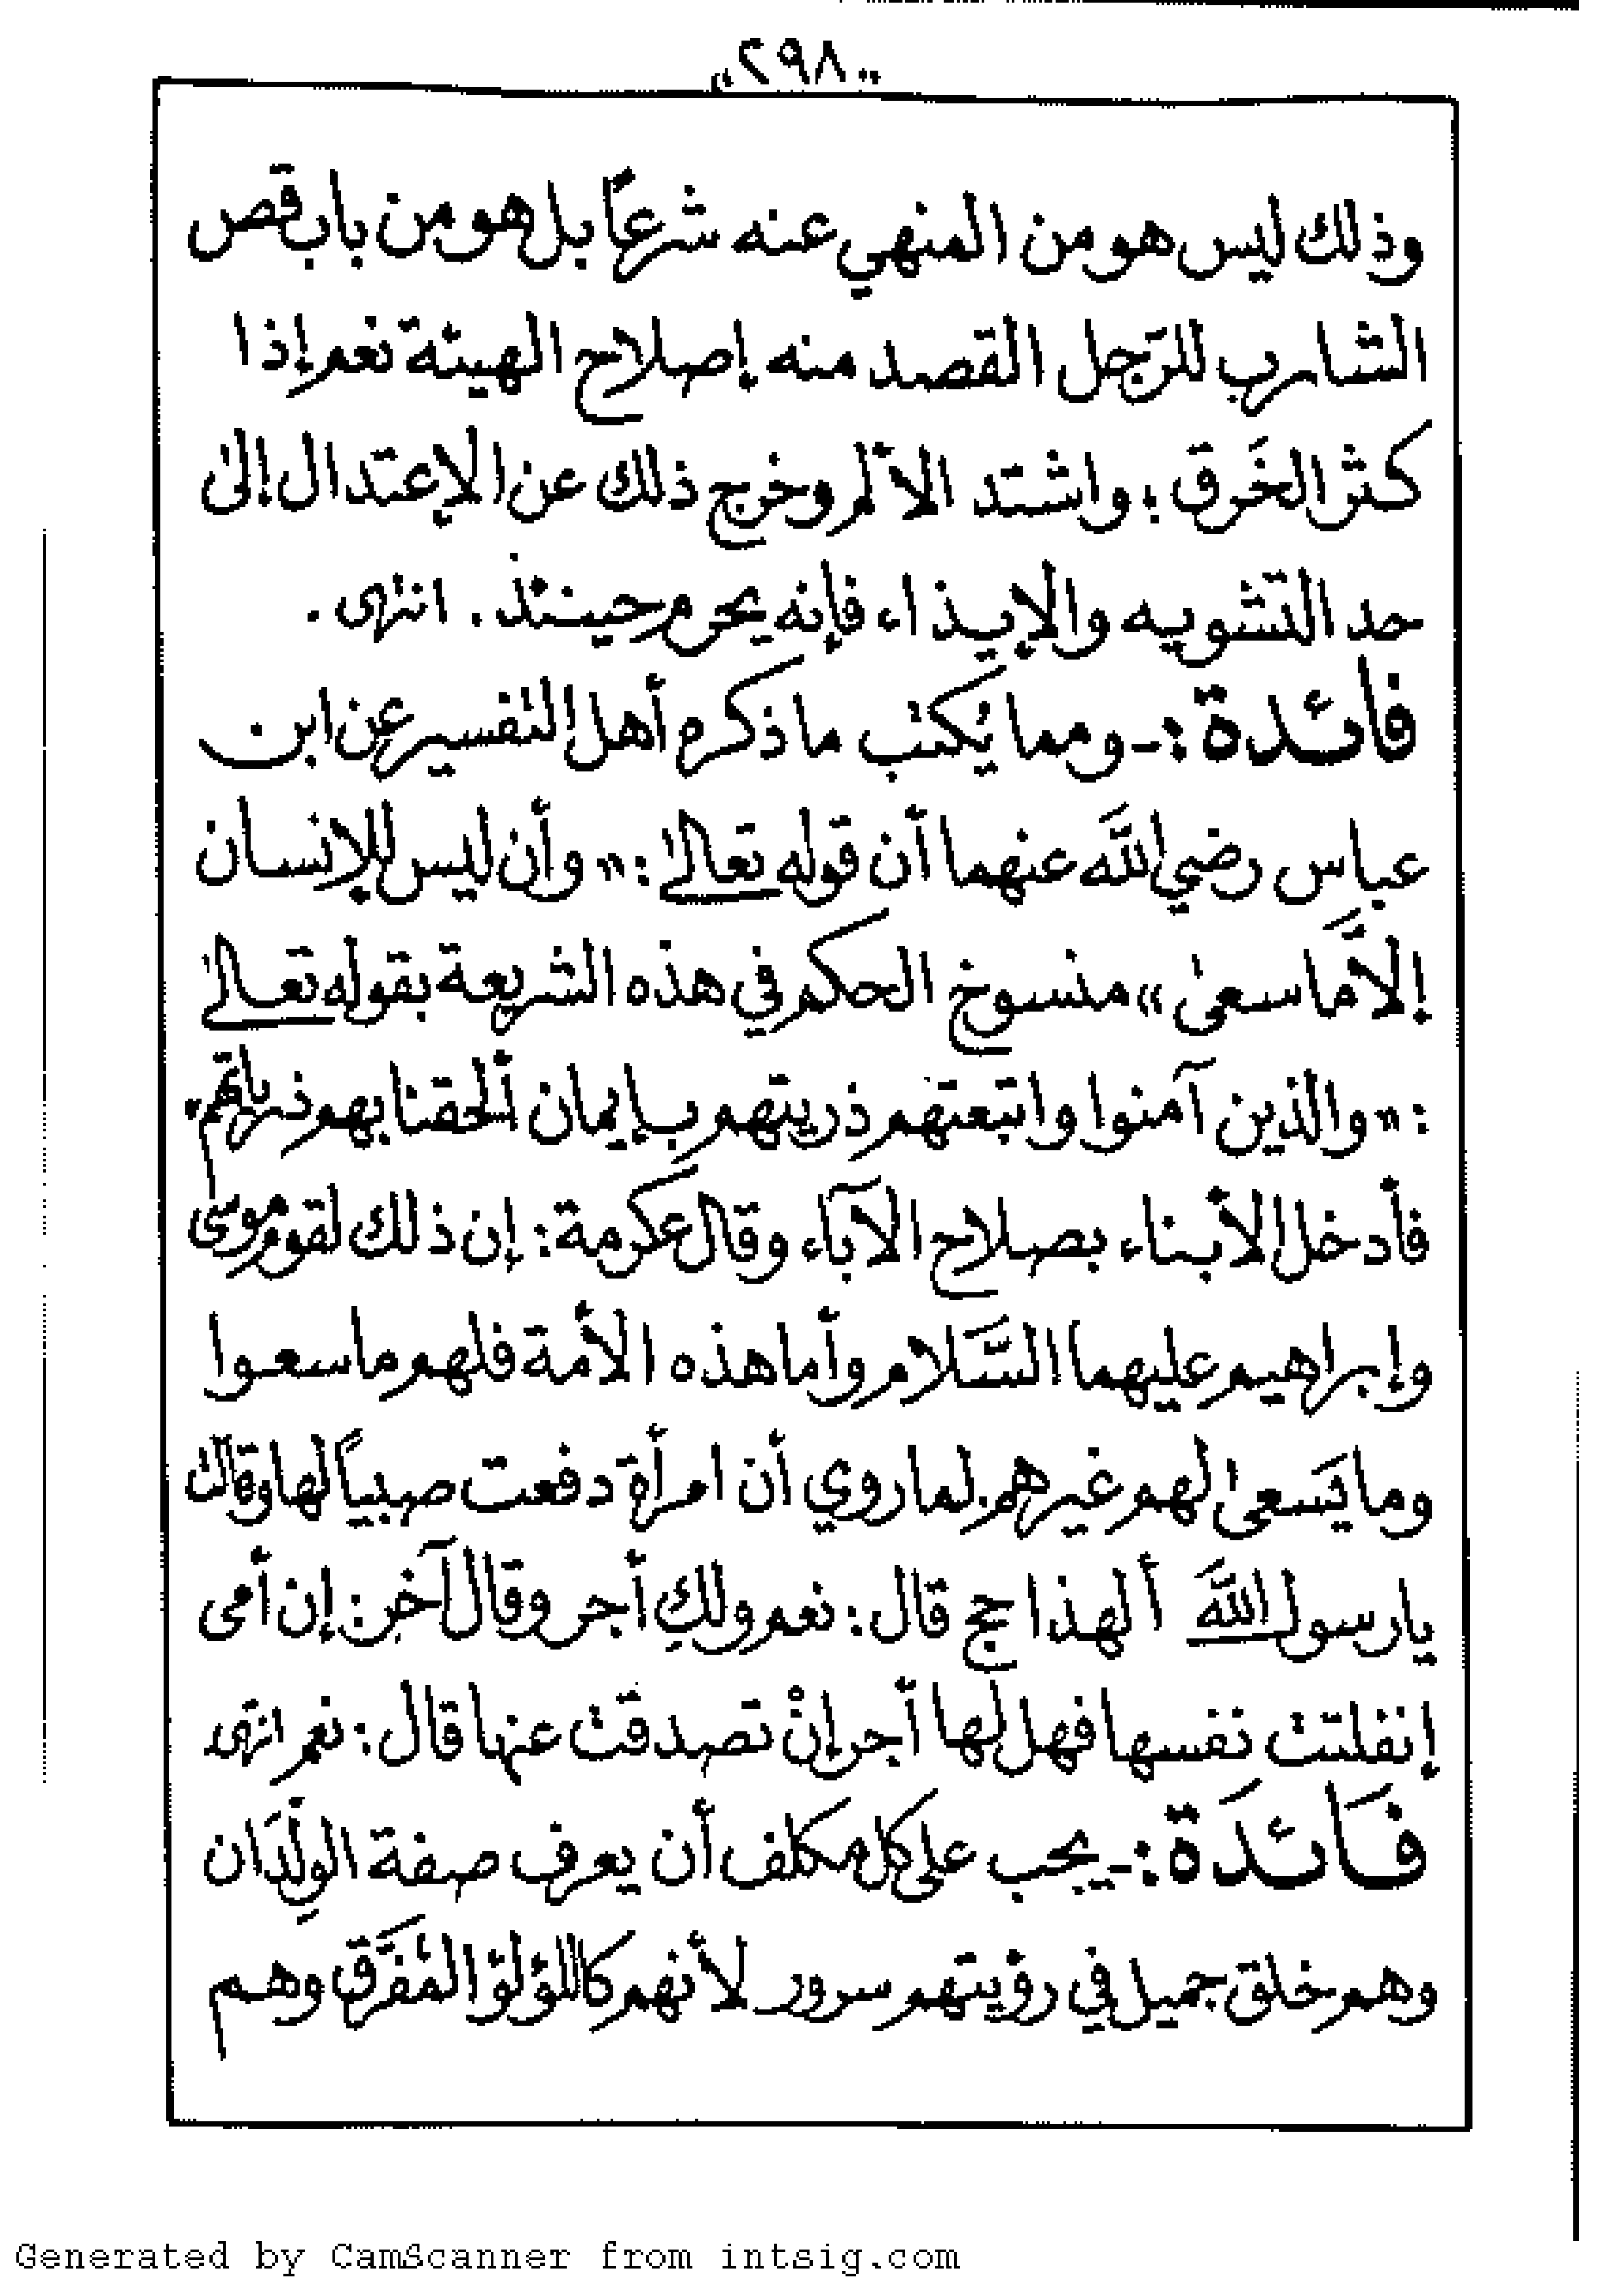 ٢٩٨
وذلك ليس هو من المنهي عنه شرعاً بل هو من باب قص
الشارب للرّجل القصد منه إصلاح الهيئة نعم إذا
كثر الخَرق؛ واشتد الألم وخرج ذلك عن الإعتدال إلى
حد التشويه والإيذاء فإنه يحرم حينئذ. انتهى.
فائدة:- ومما يُكتب ما ذكره أهل التفسير عن ابن
عباس رضي اللَّه عنهما أن قوله تعالى: «وأن ليس للإنسان
إلاَّ مَا سعىٰ» منسوخ الحكم في هذه الشريعة بقوله تعالىٰ
: «والذين آمنوا واتبعتهم ذريتهم بإيمان ألحقنا بهم ذرياتهم»
فأدخل الأبناء بصلاح الآباء وقال عكرمة: إن ذلك لقوم موسى
وإبراهيم عليهما السَّلام وأما هذه الأمة فلهم ما سعوا
وما يَسعىٰ لهم غيرهم. لما روي أن امرأة دفعت صبياً لها وقالت
يا رسول اللَّه ألهذا حج قال: نعم ولكِ أجر وقال آخر: إن أمى
إنفلتت نفسها فهل لها أجر إنْ تصدقت عنها قال: نعم انتهى
فَائدَة:- يجب على كل مكلف أن يعرف صفة الوِلْدَان
وهم خلق جميل في رؤيتهم سرور لأنهم كاللؤلؤ المُفَرَّق وهم
Generated by CamScanner from intsig.com